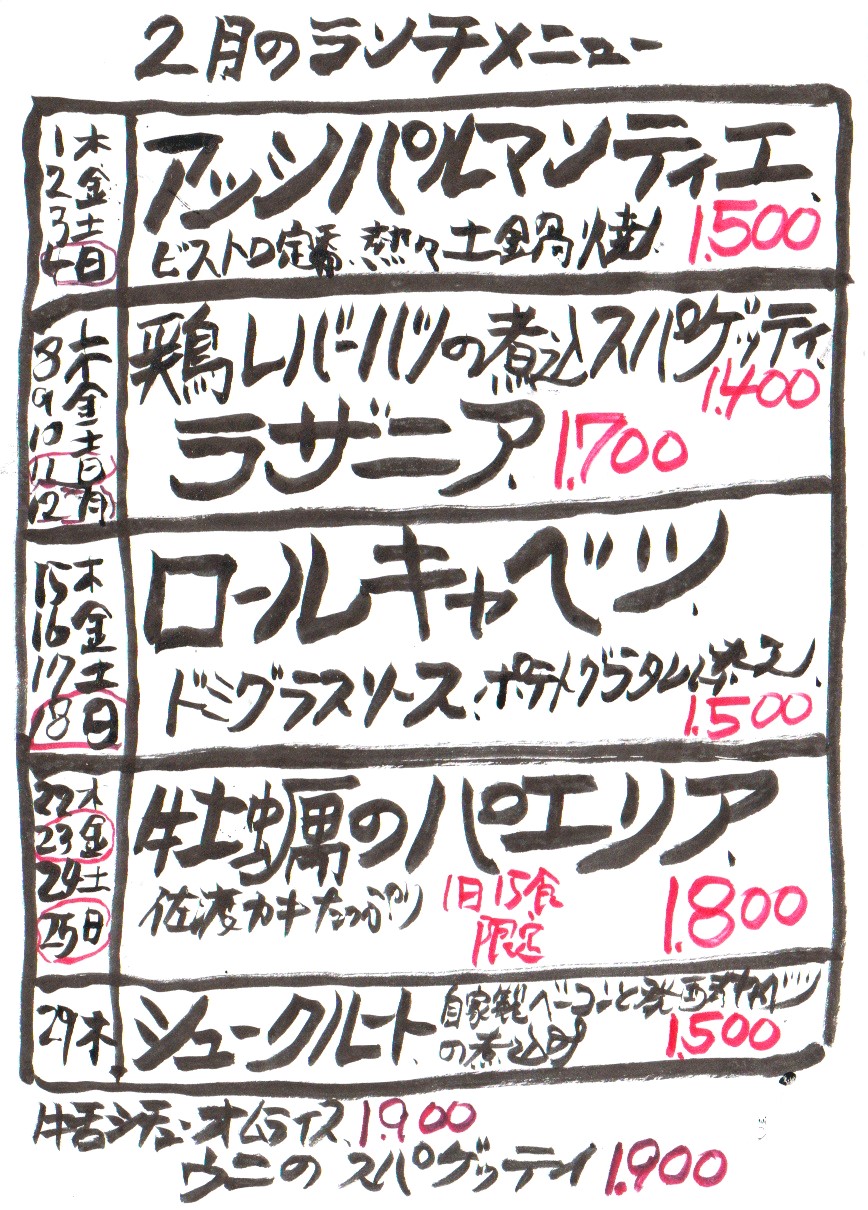 2月のランチメニュー
1木
2金
3土
4日
アッシパルマンティエ
ビストロ定番、熱々土鍋焼 1.500
8木
9金
10土
11日
12月
鶏レバーハツの煮込スパゲッティ
1.400
ラザニア 1.700
15木
16金
17土
18日
ロールキャベツ
ドミグラスソース、ポテトグラタン添え
1.500
22木
23金
24土
25日
牡蠣のパエリア
佐渡カキたっぷり 1日15食
限定
1.800
29木
シュークルート 自家製ベーコンと発酵キャベツ
の煮込み
1.500
牛舌シチューオムライス 1.900
ウニのスパゲッティ 1.900